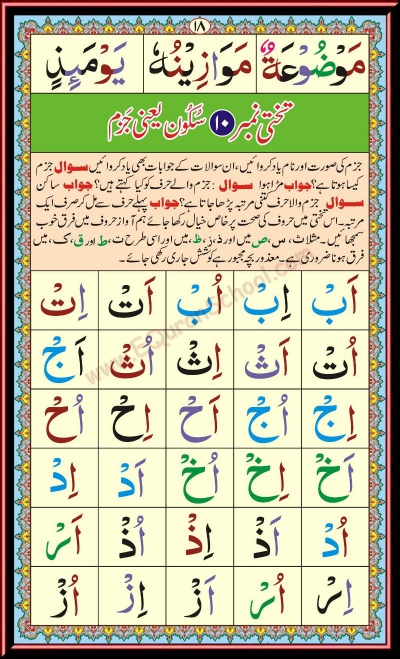 ١٨
مَوْضُوْعَةٌ مَوَازِيْنُهٗ يَوْمَئِذٍ
تختی نمبر ۱۰ سُکُون یعنی جَزم
جزم کی صورت اور نام یاد کروائیں، ان سوالات کے جوابات بھی یاد کروائیں سوال جزم
کیسا ہوتا ہے؟ جواب مڑا ہوا سوال : جزم والے حرف کو کیا کہتے ہیں؟ جواب ساکن
سوال جزم والا حرف کتنی مرتبہ پڑھا جاتا ہے؟ جواب پہلے حرف سے مل کر صرف ایک
مرتبہ۔ اس تختی میں حروف کی صحت پر خاص خیال رکھا جائے ہم آواز حروف میں فرق خوب
سمجھائیں۔ مثلا ث، س، ص میں اور ذ، ز، ظ، میں اور اسی طرح ت، ط اور ق، ک، میں
فرق ہونا ضروری ہے۔ معذور بچہ مجبور ہے کوشش جاری رکھی جائے۔
اَبْ اِبْ اُبْ اَتْ اِتْ
اُتْ اَثْ اِثْ اُثْ اَجْ
اِجْ اُجْ اَحْ اِحْ اُحْ
اَخْ اِخْ اُخْ اَدْ اِدْ
اُدْ اَذْ اِذْ اُذْ اَرْ
اِرْ اُرْ اَزْ اِزْ اُزْ
www.EQuranSchool.com